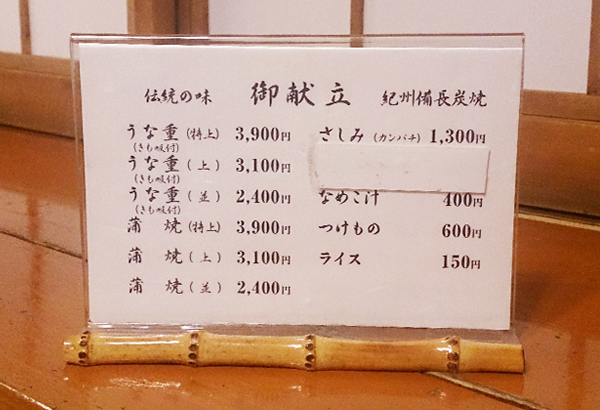 伝統の味 御献立 紀州備長炭焼
うな重(特上) 3,900円
(きも吸付)
うな重(上) 3,100円
(きも吸付)
うな重(並) 2,400円
(きも吸付)
蒲焼(特上) 3,900円
蒲焼(上) 3,100円
蒲焼(並) 2,400円
さしみ(カンパチ) 1,300円
なめこ汁 400円
つけもの 600円
ライス 150円